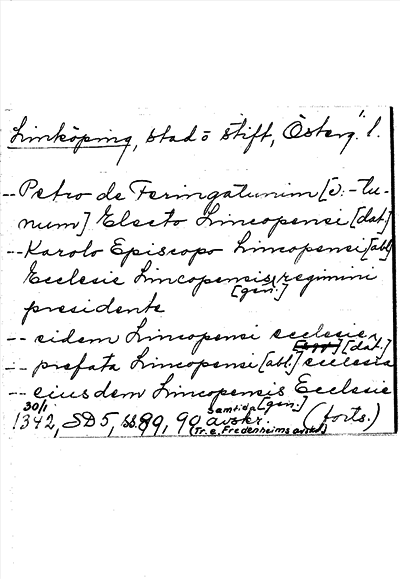 Linköping, stad o stift, Österg:s l.
-- Petro de Feringatunim [ɔ: -tu-
num] Electo Lincopensi [dat.]
-- Karolo Episcopo Lincopensi [abl.]
Ecclesie Lincopensis [gen.] regimini
presidente
-- eidem Lincopensi ecclesie [dat.]
-- prefata Lincopensi [abl.] ecclesia
-- eiusdem Lincopensis [gen.] Ecclesie
30/1 1342, SD5, ss. 89, 90 samtida avskr. (forts.)
(Tr. e. Fredenheims avskr.)